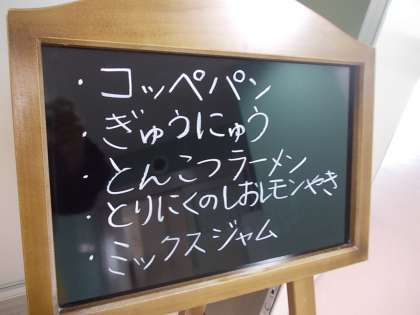 ・コッペパン
・ぎゅうにゅう
・とんこつラーメン
・とりにくのしおレモンやき
・ミックスジャム